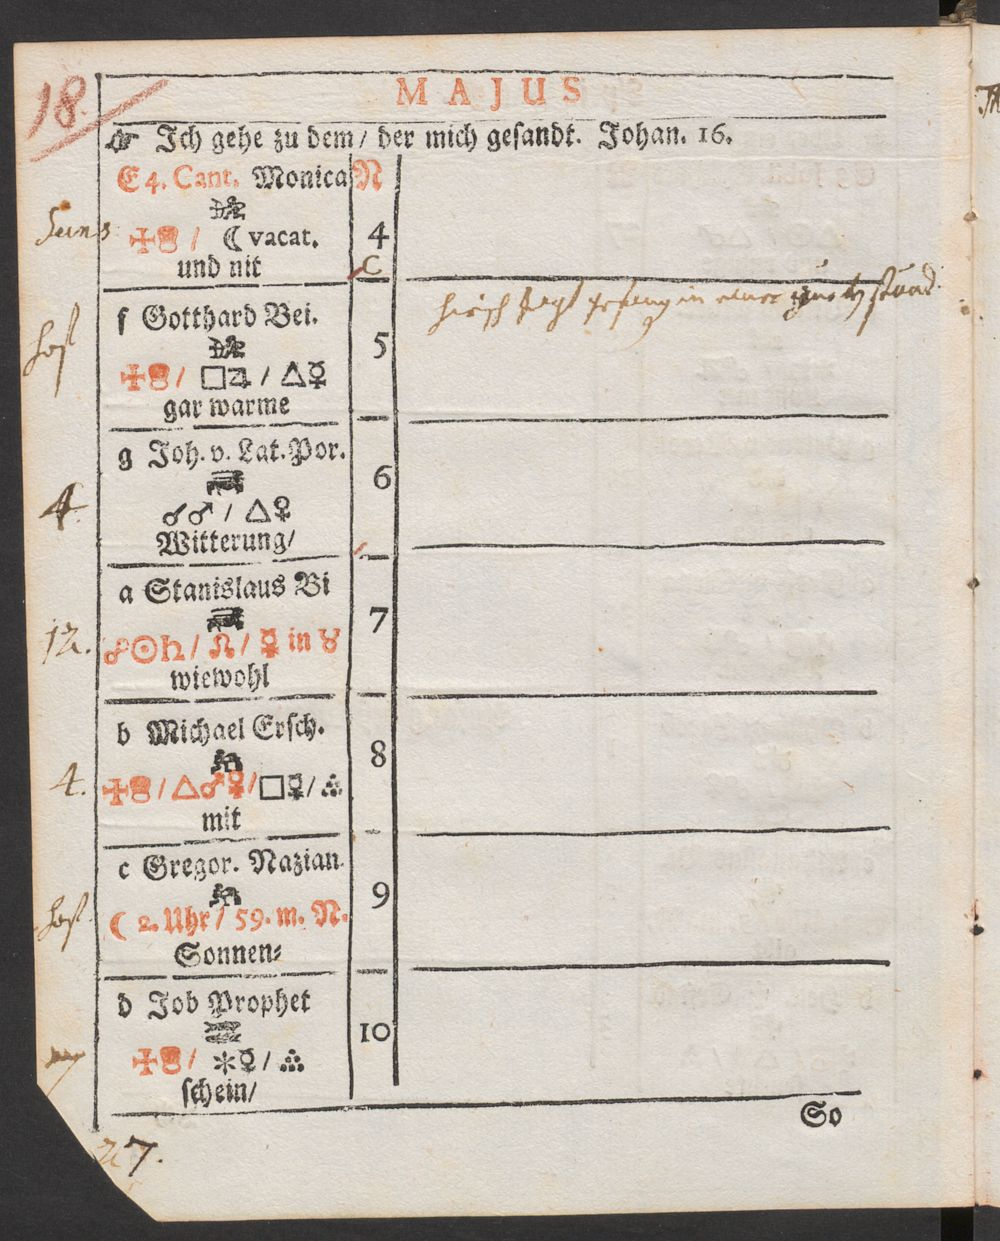 18.
MAJUS
☞ Ich gehe zu dem/ der mich gesandt. Johan. 16.
E 4. Cant. Monica N
/ ☾ vacat. 4
und nit C
f Gotthard Bei.
/ □♃ / △☿ 5
gar warme
g Joh. v. Lat. Por.
4. ☌♂ / △♀ 6
Witterung/
a Stanislaus Bi
12. ☍☉♄ / ☊ / ☿ in ♉ 7
wiewohl
b Michael Ersch.
4. / △♂♀ / □☿ / 8
mit
c Gregor. Nazian.
☾ 2. Uhr / 59. m. N. 9
Sonnen⸗
d Job Prophet
/ ✱☿ / 10
schein/
So
27.